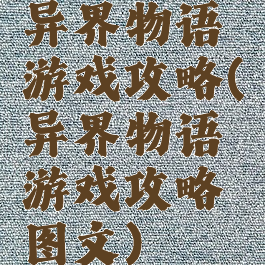 异界物语
游戏攻略(
异界物语
游戏攻略
图文)